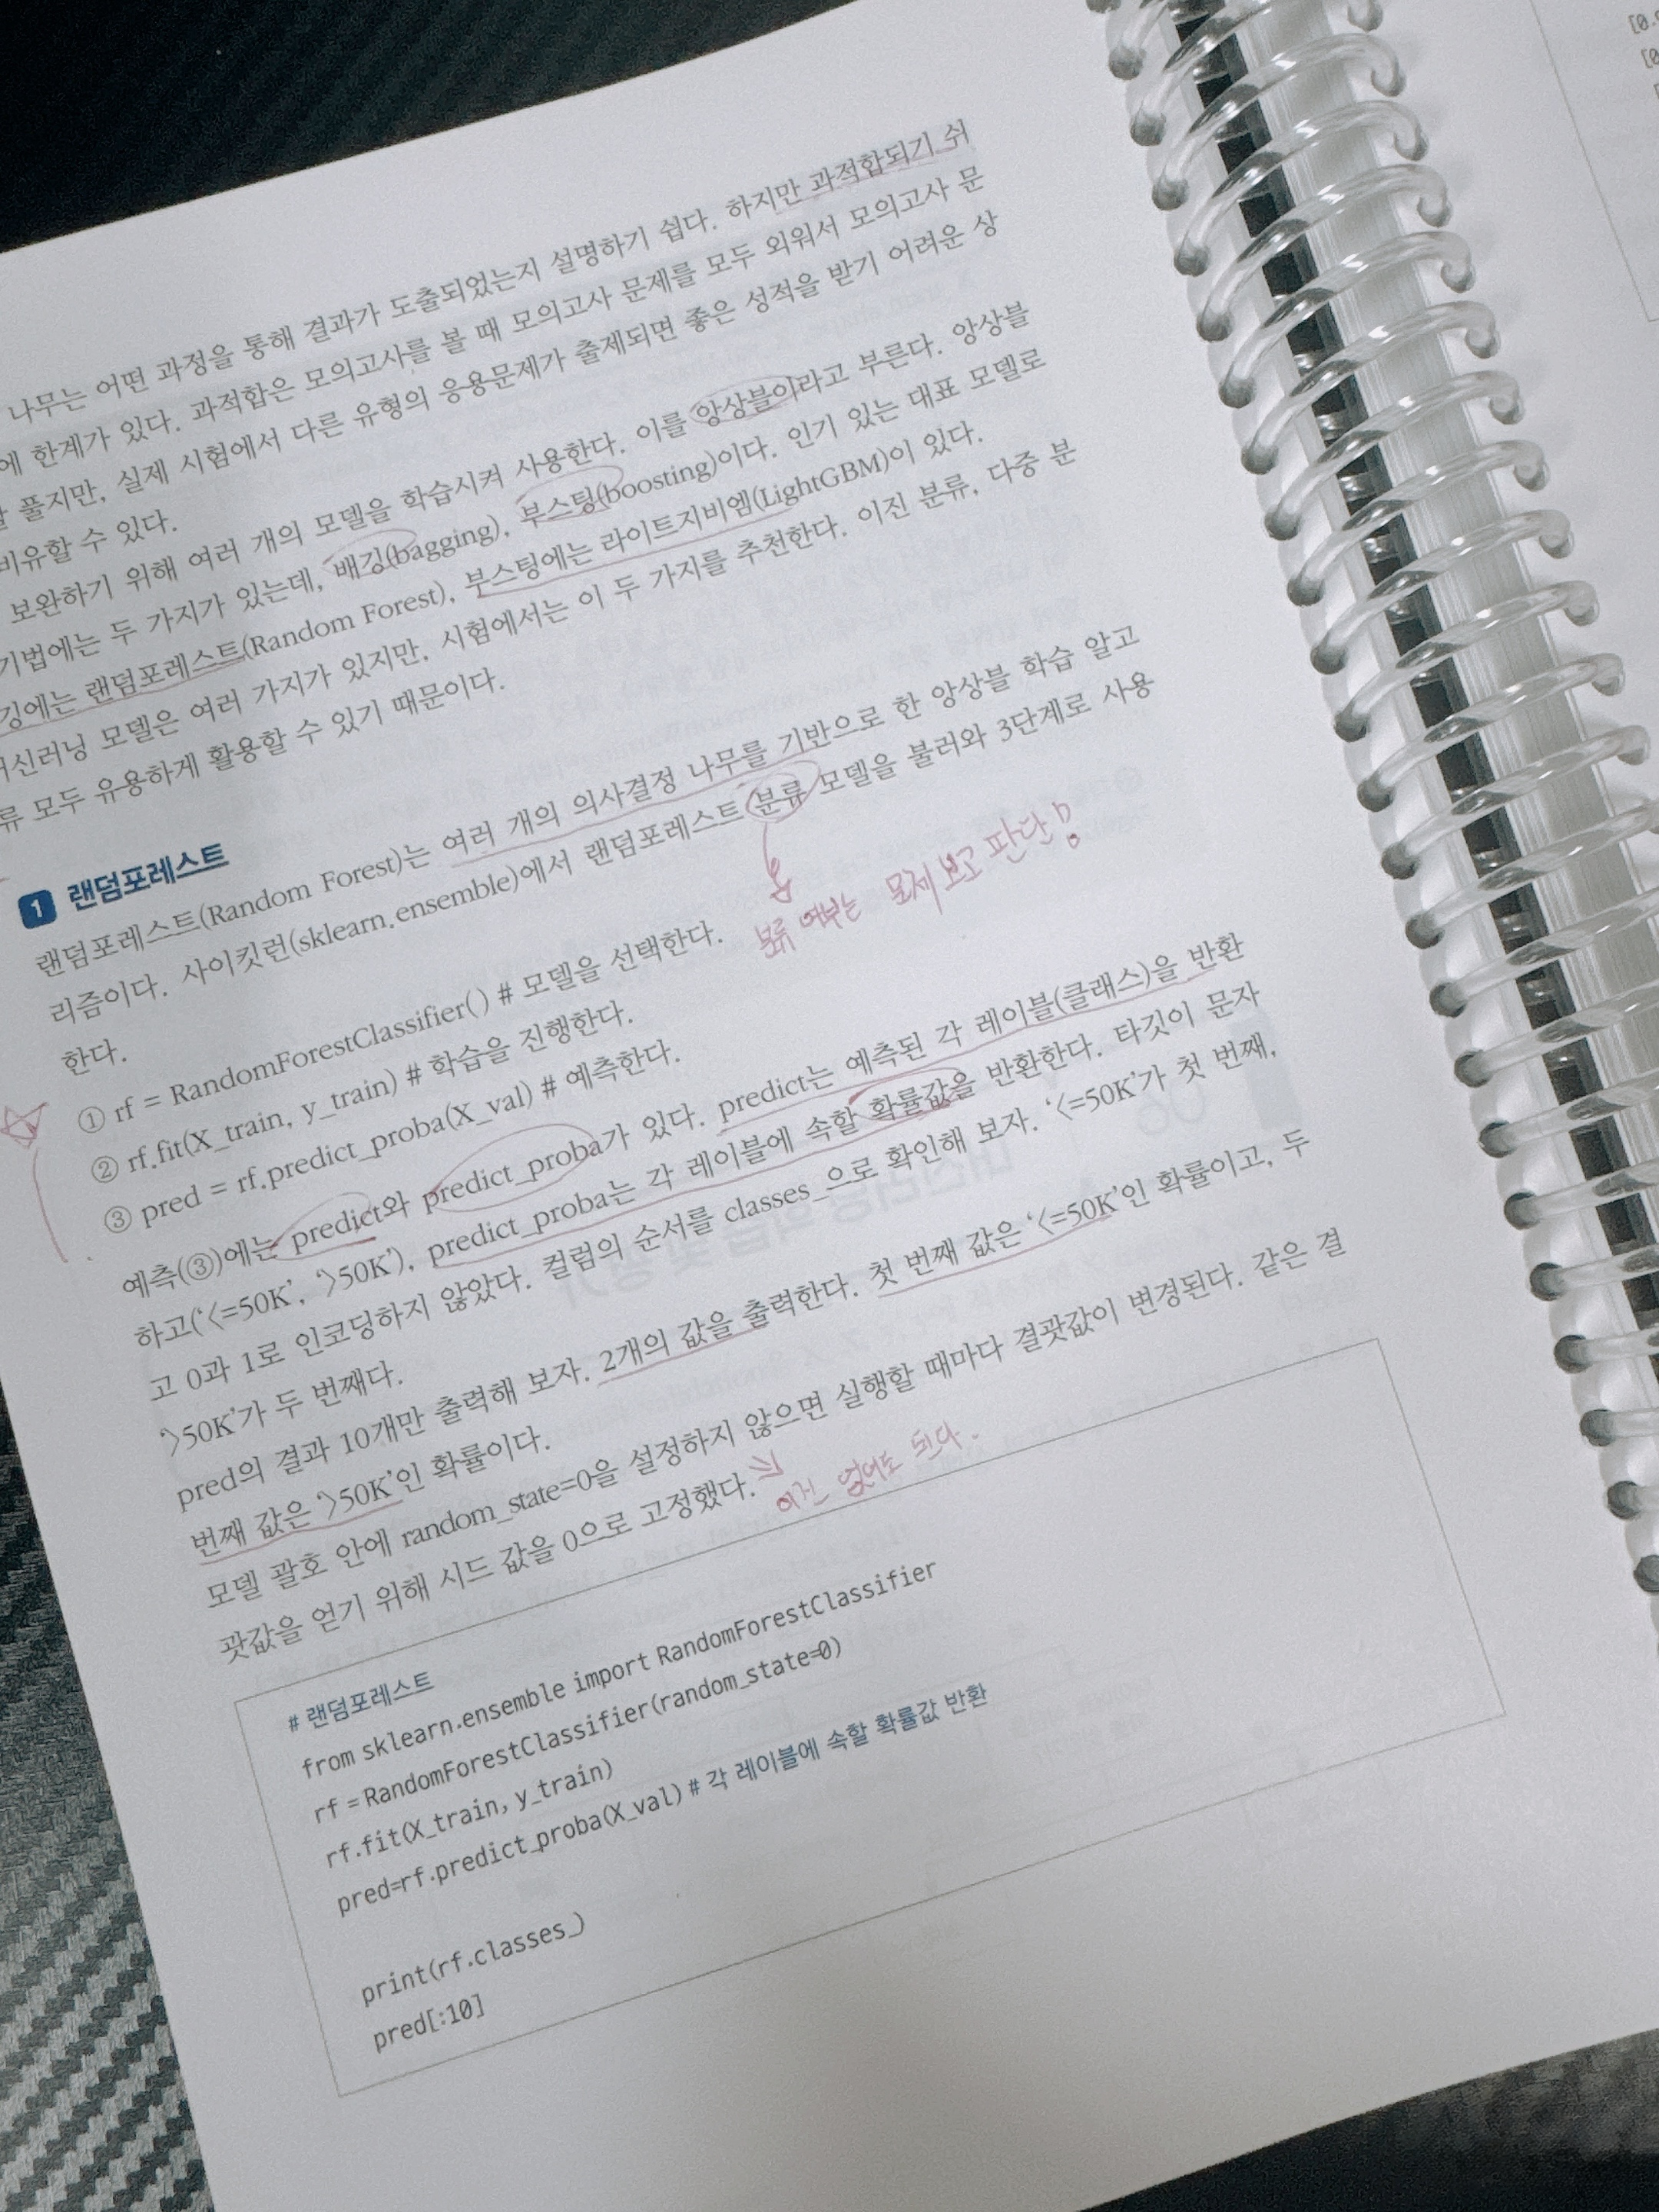 나무는 어떤 과정을 통해 결과가 도출되었는지 설명하기 쉽다. 하지만 과적합되기 쉬
에 한계가 있다. 과적합은 모의고사를 볼 때 모의고사 문제를 모두 외워서 모의고사 문
풀지만, 실제 시험에서 다른 유형의 응용문제가 출제되면 좋은 성적을 받기 어려운 상
비유할 수 있다.
보완하기 위해 여러 개의 모델을 학습시켜 사용한다. 이를 앙상블이라고 부른다. 앙상블
기법에는 두 가지가 있는데, 배깅(bagging), 부스팅(boosting)이다. 인기 있는 대표 모델로
깅에는 랜덤포레스트(Random Forest), 부스팅에는 라이트지비엠(LightGBM)이 있다.
머신러닝 모델은 여러 가지가 있지만, 시험에서는 이 두 가지를 추천한다. 이진 분류, 다중 분
류 모두 유용하게 활용할 수 있기 때문이다.
1 랜덤포레스트
랜덤포레스트(Random Forest)는 여러 개의 의사결정 나무를 기반으로 한 앙상블 학습 알고
리즘이다. 사이킷런(sklearn.ensemble)에서 랜덤포레스트 분류 모델을 불러와 3단계로 사용
한다.
분류 여부는 문제 보고 판단!
① rf = RandomForestClassifier() # 모델을 선택한다.
② rf.fit(X_train, y_train) # 학습을 진행한다.
③ pred = rf.predict_proba(X_val) # 예측한다.
예측(③)에는 predict와 predict_proba가 있다. predict는 예측된 각 레이블(클래스)을 반환
하고('<=50K', '>50K'), predict_proba는 각 레이블에 속할 확률값을 반환한다. 타깃이 문자
고 0과 1로 인코딩하지 않았다. 컬럼의 순서를 classes_으로 확인해 보자. '<=50K'가 첫 번째,
'>50K'가 두 번째다.
pred의 결과 10개만 출력해 보자. 2개의 값을 출력한다. 첫 번째 값은 '<=50K'인 확률이고, 두
번째 값은 '>50K'인 확률이다.
모델 괄호 안에 random_state=0을 설정하지 않으면 실행할 때마다 결괏값이 변경된다. 같은 결
괏값을 얻기 위해 시드 값을 0으로 고정했다.
이건 없어도 되다.
# 랜덤포레스트
from sklearn.ensemble import RandomForestClassifier
rf = RandomForestClassifier(random_state=0)
rf.fit(X_train, y_train)
pred=rf.predict_proba(X_val) # 각 레이블에 속할 확률값 반환
print(rf.classes_)
pred[:10]